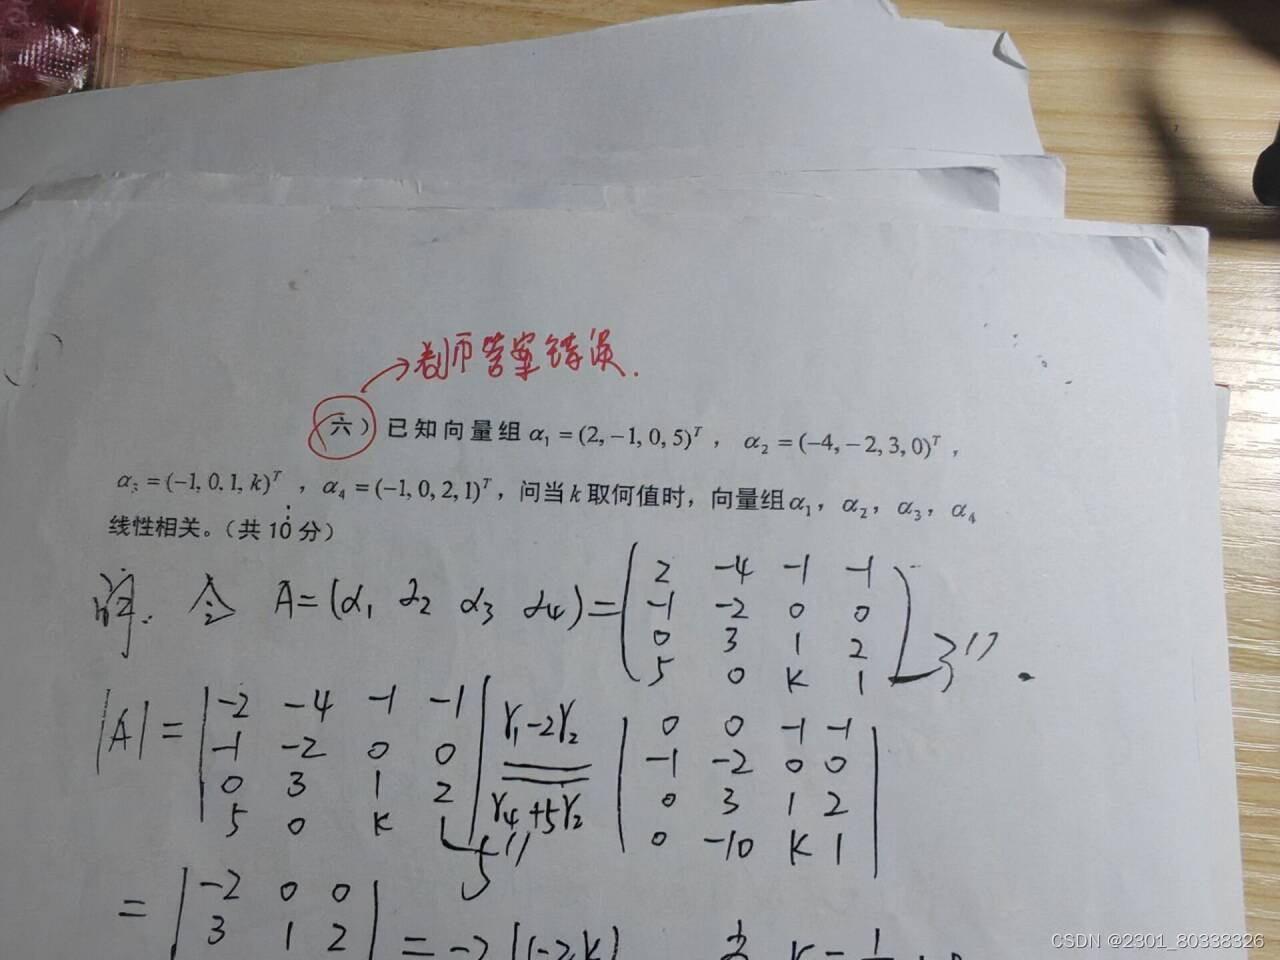 老师答案错误.
(六) 已知向量组 α₁ = (2, -1, 0, 5)ᵀ, α₂ = (-4, -2, 3, 0)ᵀ,
α₃ = (-1, 0, 1, k)ᵀ, α₄ = (-1, 0, 2, 1)ᵀ, 问当 k 取何值时, 向量组 α₁, α₂, α₃, α₄
线性相关。(共 10 分)
解. 令 A = (α₁ α₂ α₃ α₄) =
2 -4 -1 -1
-1 -2 0 0
0 3 1 2
5 0 k 1
3''
|A| =
-2 -4 -1 -1
-1 -2 0 0
0 3 1 2
5 0 k 1
5''
r₁-2r₂
r₄+5r₂
0 0 -1 -1
-1 -2 0 0
0 3 1 2
0 -10 k 1
=
-2 0 0
3 1 2
= -2(1-2k)
CSDN @2301_80338326